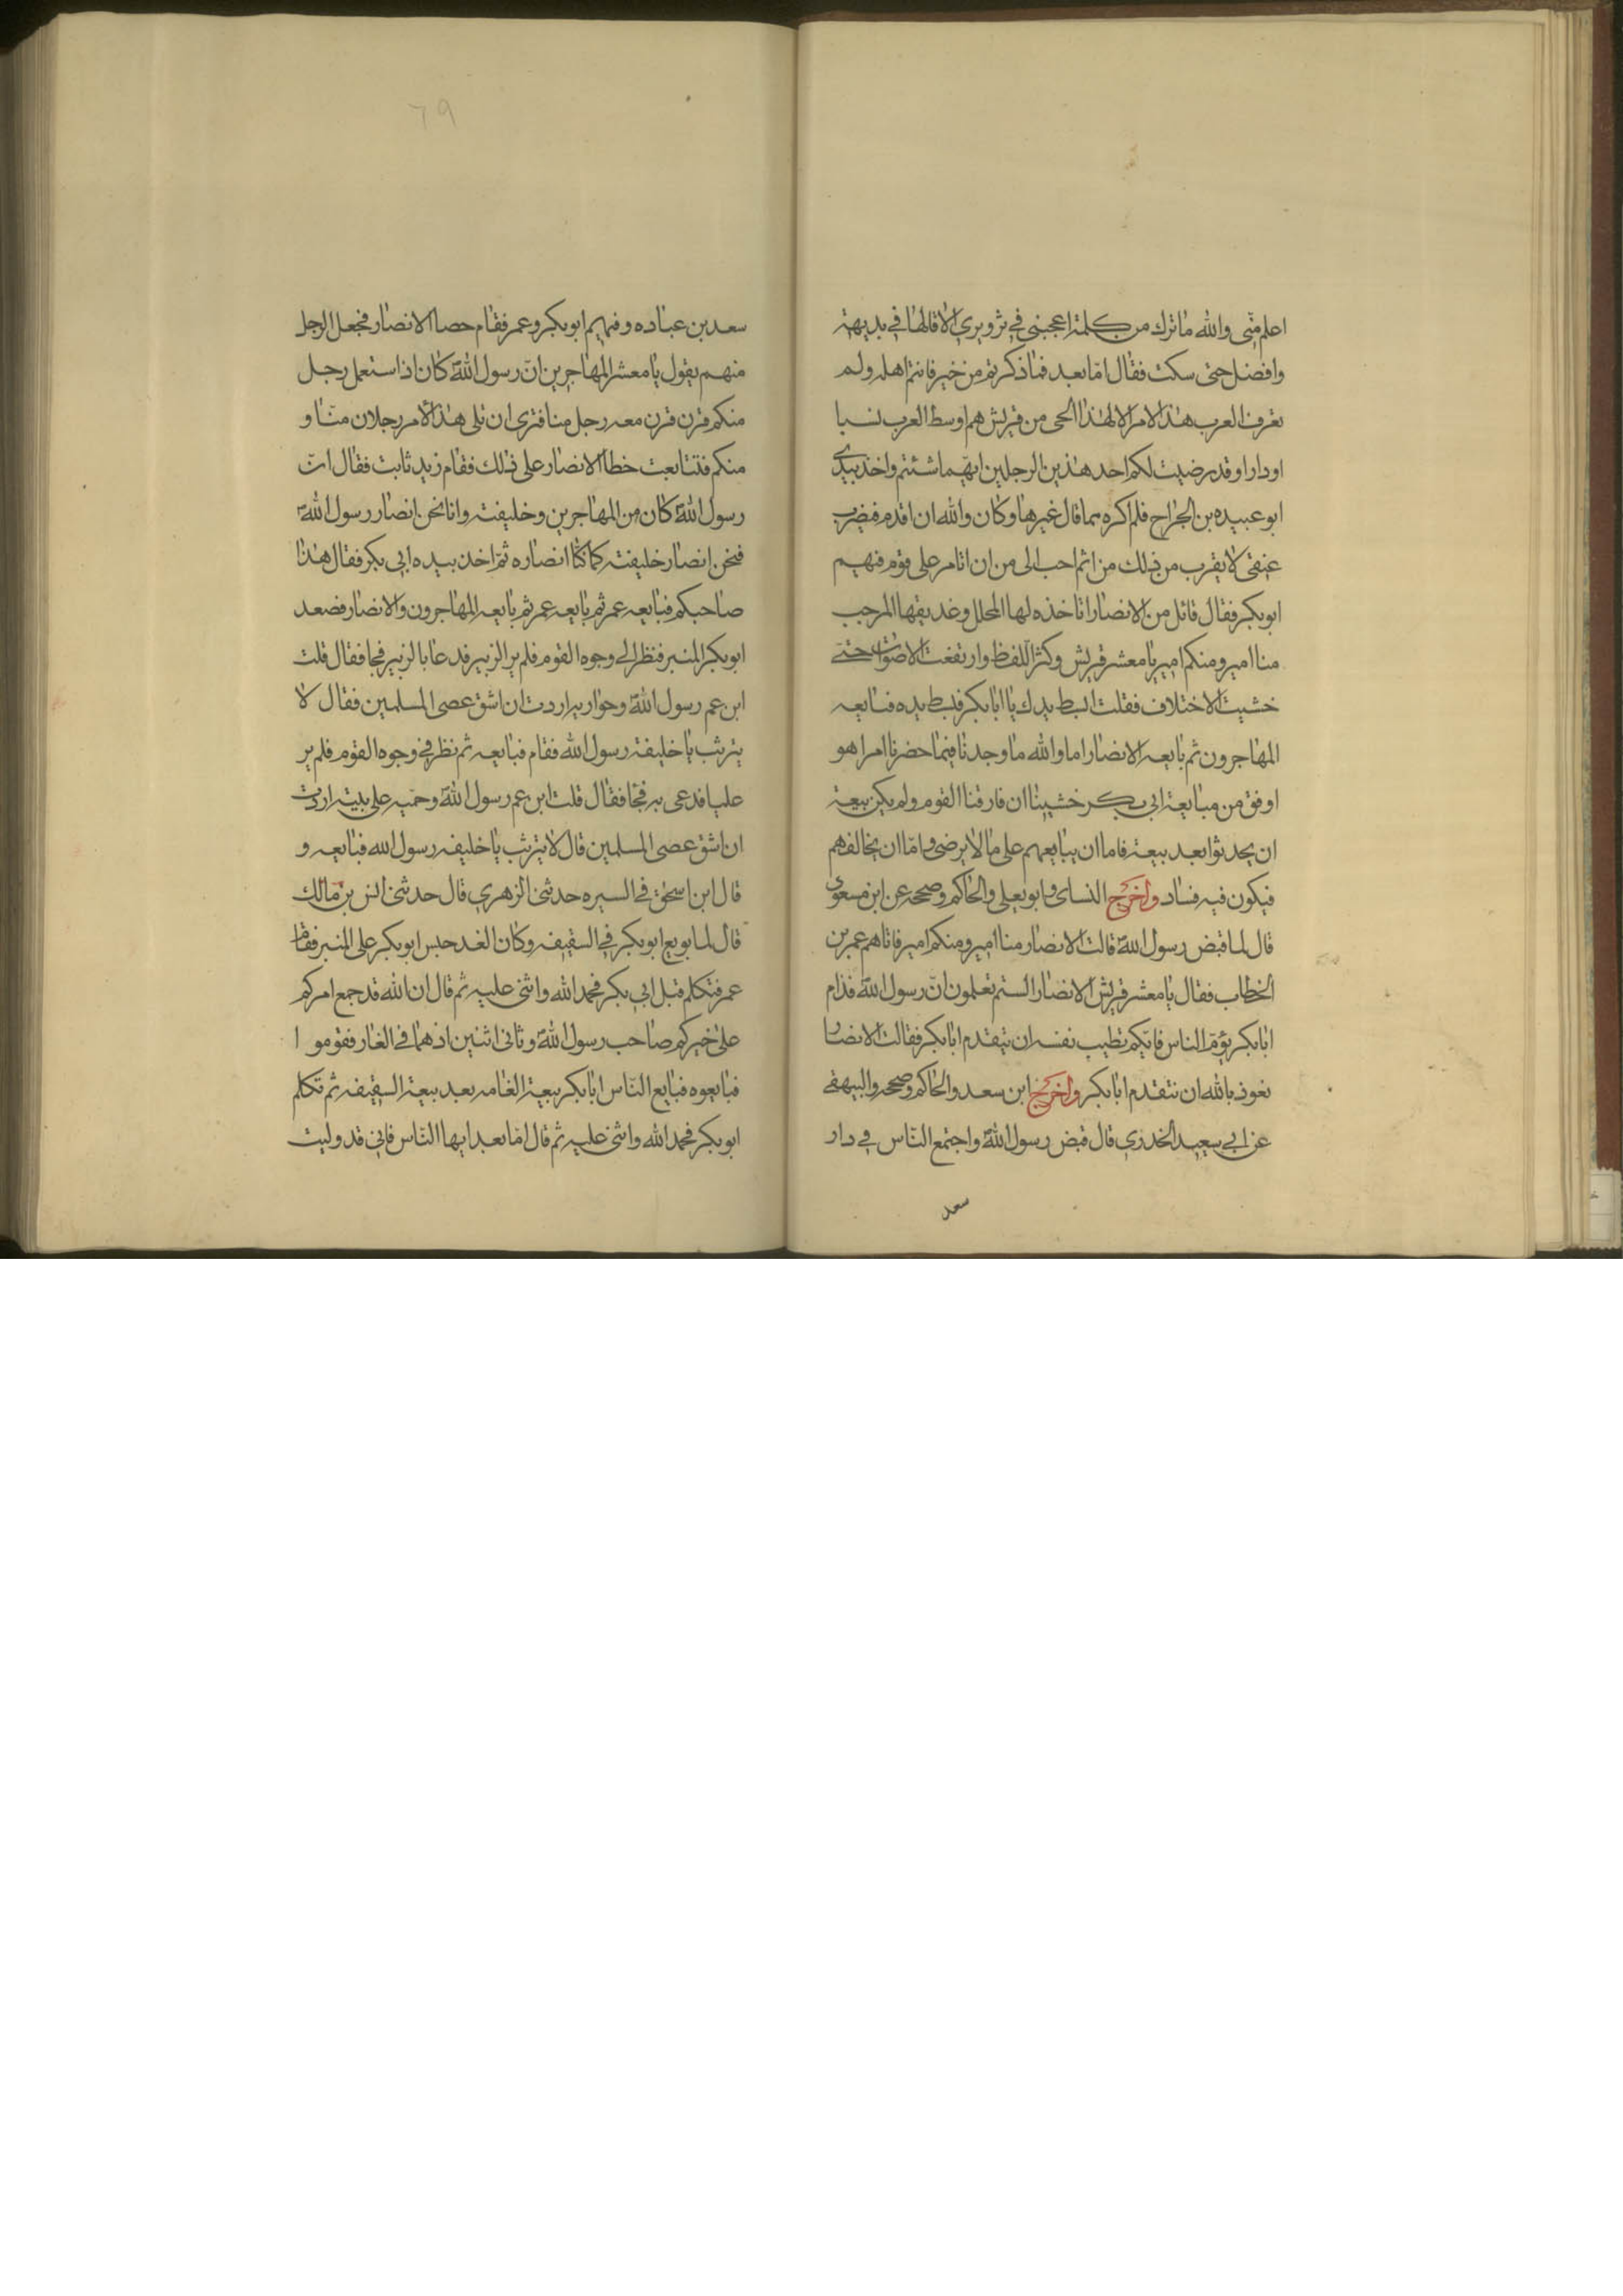 اعلم منّي والله ما ترك من كلمة اعجبني في تزويري الا قالها في بديهة
وافضل حتى سكت فقال امّا بعد فما ذكرتم من خير فانتم اهله ولم
تعرف العرب هذا الامر الا لهذا الحى من قريش هم اوسط العرب نسبا
او دارا وقد رضيت لكم احد هذين الرجلين ايّهما شئتم واخذ بيدى
ابو عبيده بن الجراح فلم اكره مما قال غيرها وكان والله ان اقدم فيضرب
عنقى لا يقرب من ذلك من اثم احب الى من ان اتامر على قوم فيهم
ابو بكر فقال قائل من الانصار انا خذه لها المحلل وغديقها المرجب
منا امير ومنكم امير يا معشر قريش وكثر اللفظ وارتفعت الاصوات حتى
خشيت الاختلاف فقلت ابسط يدك يا ابا بكر فبسط يده فبايعه
المهاجرون ثم بايعه الانصار اما والله ما وجدنا فيما حضرنا امرا هو
اوفق من مبايعة ابي بكر خشينا ان فارقنا القوم ولم يكن بيعة
ان يحدثوا بعد بيعة فاما ان يبايعهم على ما لا يرضى واما ان يخالفهم
فيكون فيه فساد واخرج النساى وابو يعلى والحاكم وصححه عن ابن مسعود
قال لما قبض رسول اللهّ قالت الانصار منا امير ومنكم امير فاتاهم عمر بن
الخطاب فقال يا معشر قريش الانصار الستم تعلمون انّ رسول اللهّ قدام
ابا بكر يؤمّ الناس فايّكم تطيب نفسه ان يتقدم ابا بكر فقالت الانصار
نعوذ بالله ان نتقدم ابا بكر واخرج ابن سعد والحاكم وصححه والبيهقى
عن ابي سعيد الخدري قال قبض رسول اللهّ واجتمع النّاس في دار
سعد
٦٩
سعد بن عباده وفيهم ابو بكر وعمر فقام حصا الانصار فجعل الرجل
منهم يقول يا معشر المهاجرين انّ رسول اللهّ كان اذا استعمل رجل
منكم قرن قرن معه رجل منا فترى ان تلى هذا الامر رجلان منّا و
منكم فتتابعت خطا الانصار على ذلك فقام زيد ثابت فقال انّ
رسول اللهّ كان من المهاجرين وخليفته وانا نحن انصار رسول اللهّ
فنحن انصار خليفته كما كنّا انصاره ثمّ اخذ بيده ابي بكر فقال هذا
صاحبكم فبايعه عمر ثم بايعه عمر ثم بايعه المهاجرون والانصار فصعد
ابو بكر المنبر فنظر الى وجوه القوم فلم ير الزبير فدعا بالزبير فجا فقال قلت
ابن عم رسول اللهّ وحواريه اردت ان اشق عصى المسلمين فقال لا
يترثب يا خليفة رسول الله فقام فبايعه ثم نظر في وجوه القوم فلم ير
عليا فدعى به فجا فقال قلت ابن عم رسول اللهّ وختنه على بنيته اردت
ان اشق عصى المسلمين قال لا يترثب يا خليفه رسول الله فبايعه و
قال ابن اسحق في السيره حدثني الزهري قال حدثني انس بن مالك
قال لما بويع ابو بكر في السقيفه وكان الغد جلس ابو بكر على المنبر فقام
عمر فتكلم قبل ابي بكر فحمد الله واثنى عليه ثم قال ان الله قد جمع امركم
على خيركم صاحب رسول اللهّ وثاني اثنين اذ هما في الغار فقوموا
فبايعوه فبايع الناس ابا بكر بيعة الغامه بعد بيعة السقيفه ثم تكلم
ابو بكر فحمد الله واثنى عليه ثم قال امّا بعد ايها النّاس فاني قد وليت